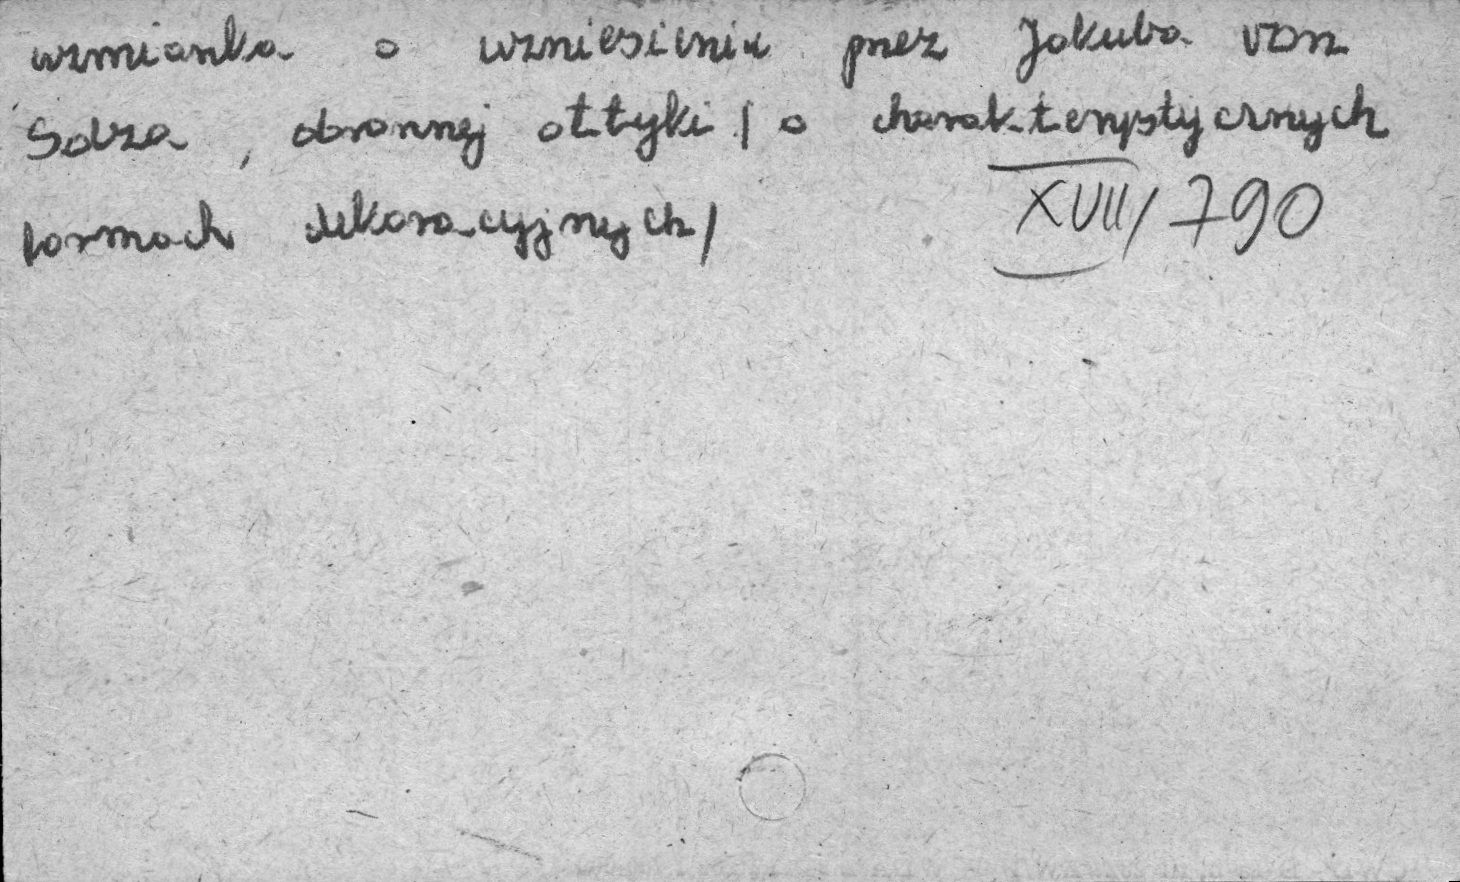 wzmianka o wzniesieniu przez Jakuba von
Salza, obronnej attyki / o charakterystycznych
formach dekoracyjnych /
XVII / 790